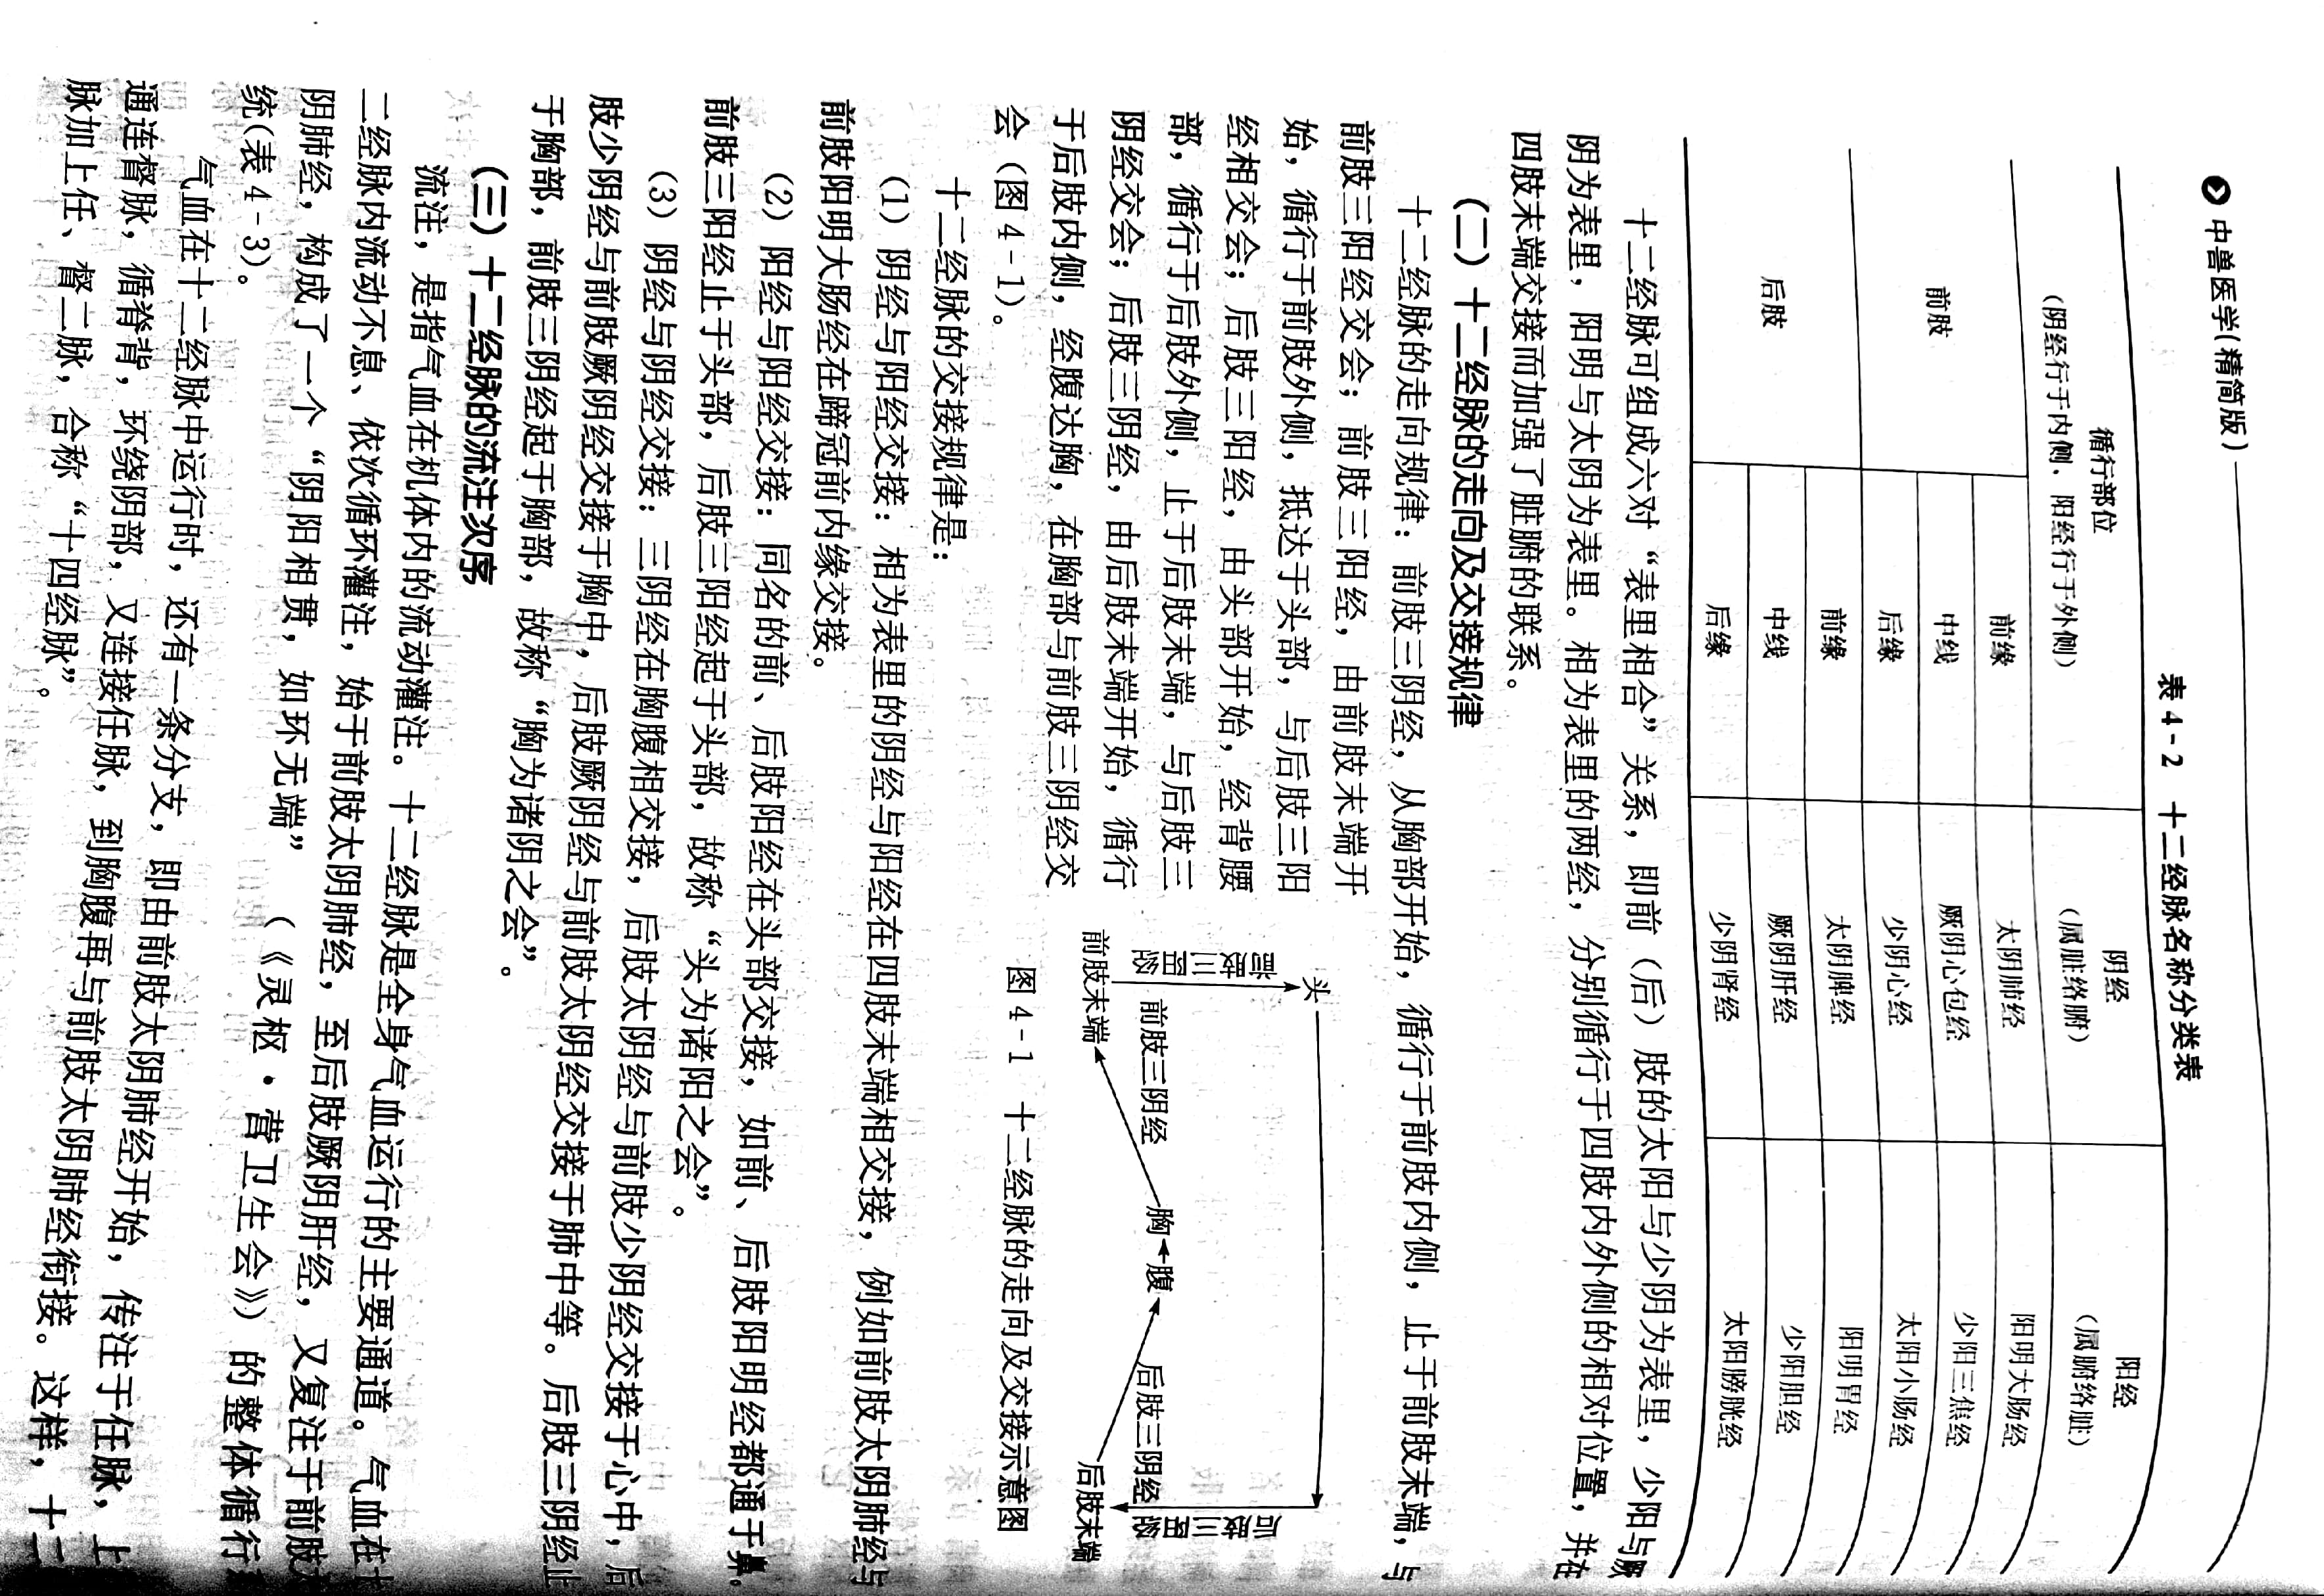 中兽医学(精简版)
表 4-2 十二经脉名称分类表
循行部位
(阴经行于内侧、阳经行于外侧)
阴经
(属脏络腑)
阳经
(属腑络脏)
前肢
前缘
太阴肺经
阳明大肠经
中线
厥阴心包经
少阳三焦经
后缘
少阴心经
太阳小肠经
后肢
前缘
太阴脾经
阳明胃经
中线
厥阴肝经
少阳胆经
后缘
少阴肾经
太阳膀胱经
十二经脉可组成六对“表里相合”关系，即前（后）肢的太阳与少阴为表里，少阳与厥
阴为表里，阳明与太阴为表里。相为表里的两经，分别循行于四肢内外侧的相对位置，并在
四肢末端交接而加强了脏腑的联系。
(二) 十二经脉的走向及交接规律
十二经脉的走向规律：前肢三阴经，从胸部开始，循行于前肢内侧，止于前肢末端，与
前肢三阳经交会；前肢三阳经，由前肢末端开
始，循行于前肢外侧，抵达于头部，与后肢三阳
经相交会；后肢三阳经，由头部开始，经背腰
部，循行于后肢外侧，止于后肢末端，与后肢三
阴经交会；后肢三阴经，由后肢末端开始，循行
于后肢内侧，经腹达胸，在胸部与前肢三阴经交
会（图 4-1）。
头
前肢三阳经
前肢末端
前肢三阴经
胸
腹
后肢三阴经
后肢三阳经
后肢末端
图 4-1 十二经脉的走向及交接示意图
十二经脉的交接规律是：
（1）阴经与阳经交接：相为表里的阴经与阳经在四肢末端相交接，例如前肢太阴肺经与
前肢阳明大肠经在蹄冠前内缘交接。
（2）阳经与阳经交接：同名的前、后肢阳经在头部交接，如前、后肢阳明经都通于鼻。
前肢三阳经止于头部，后肢三阳经起于头部，故称“头为诸阳之会”。
（3）阴经与阴经交接：三阴经在胸腹相交接，后肢太阴经与前肢少阴经交接于心中，后
肢少阴经与前肢厥阴经交接于胸中，后肢厥阴经与前肢太阴经交接于肺中等。后肢三阴经止
于胸部，前肢三阴经起于胸部，故称“胸为诸阴之会”。
(三) 十二经脉的流注次序
流注，是指气血在机体内的流动灌注。十二经脉是全身气血运行的主要通道。气血在十
二经脉内流动不息、依次循环灌注，始于前肢太阴肺经，至后肢厥阴肝经，又复注于前肢太
阴肺经，构成了一个“阴阳相贯，如环无端”（《灵枢·营卫生会》）的整体循行
统(表 4-3)。
气血在十二经脉中运行时，还有一条分支，即由前肢太阴肺经开始，传注于任脉，上
通连督脉，循脊背，环绕阴部，又连接任脉，到胸腹再与前肢太阴肺经衔接。这样，十二
脉加上任、督二脉，合称“十四经脉”。